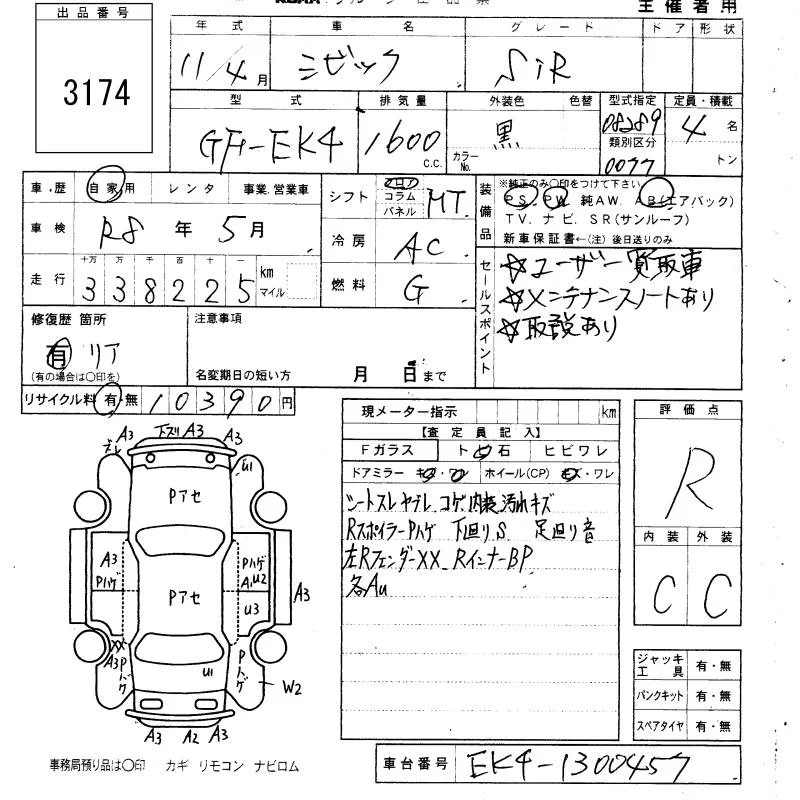 主催者用
出品番号
3174
年式 車名 グレード ドア形状
11/4月 シビック SiR
型式 排気量 外装色 色替 型式指定 定員・積載
GF-EK4 1600 C.C. 黒 カラーNo. 08289 4名
類別区分
0077 トン
車・歴 自家用 レンタ 事業.営業車
車検 R8年 5月
走行 十万 万 千 百 十 一
338225 km マイル
シフト フロア コラム パネル MT
冷房 AC
燃料 G
装備品 ※純正のみ〇印をつけて下さい
PS. PW 純AW. AB(エアバック)
TV. ナビ. SR(サンルーフ)
新車保証書←(注)後日送りのみ
セールスポイント
☆ユーザー買取車
☆メンテナンスノートあり
☆取説あり
修復歴 箇所
有 リア
(有の場合は〇印を)
注意事項
名変期日の短い方 月 日まで
リサイクル料 有・無 10390円
現メーター指示 km
【査定員記入】
Fガラス ト 石 ヒビワレ
ドアミラー キズ・ワレ ホイール(CP) キズ・ワレ
シートスレ ヤブレ コゲ 内装 汚れ キズ
Rスポイラー Pハゲ 下廻り S 足廻り音
左Rフェンダー XX RインナーBP
各Au
評価点
R
内装 外装
C C
ジャッキ工具 有・無
パンクキット 有・無
スペアタイヤ 有・無
A3 下ズリ A3 A3
ズレ
U1
Pアセ
A3 Pハゲ
Pハゲ A1 U2
Pアセ
U3
A3
XX
A3
Pトゲ
Pトゲ
U1
W2
A3 A2 A3
事務局預り品は〇印 カギ リモコン ナビロム
車台番号 EK4-1300457